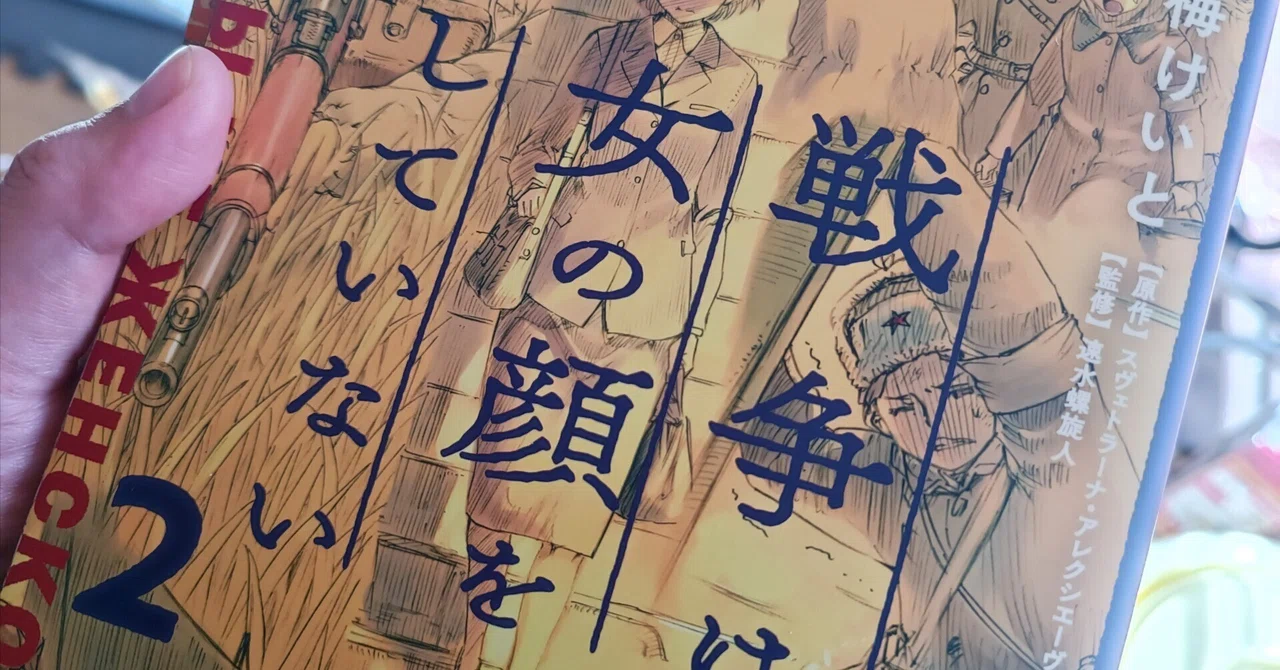 梅けいと
【原作】スヴェトラーナ・アレクシエーヴ
【監修】速水螺旋人
戦争は
女の顔を
していない
2
ЖЕНСКО